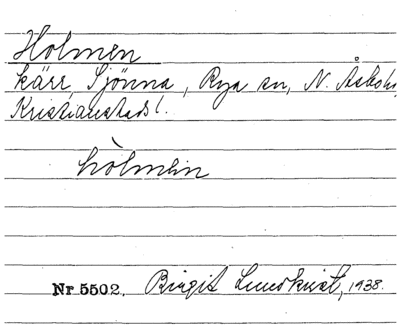 Holmen
kärr, Sjönna, Rya sn, N. Åsbohd,
Kristianstads l.
hòlmən
Nr 5502. Birgit Lundkvist, 1938.